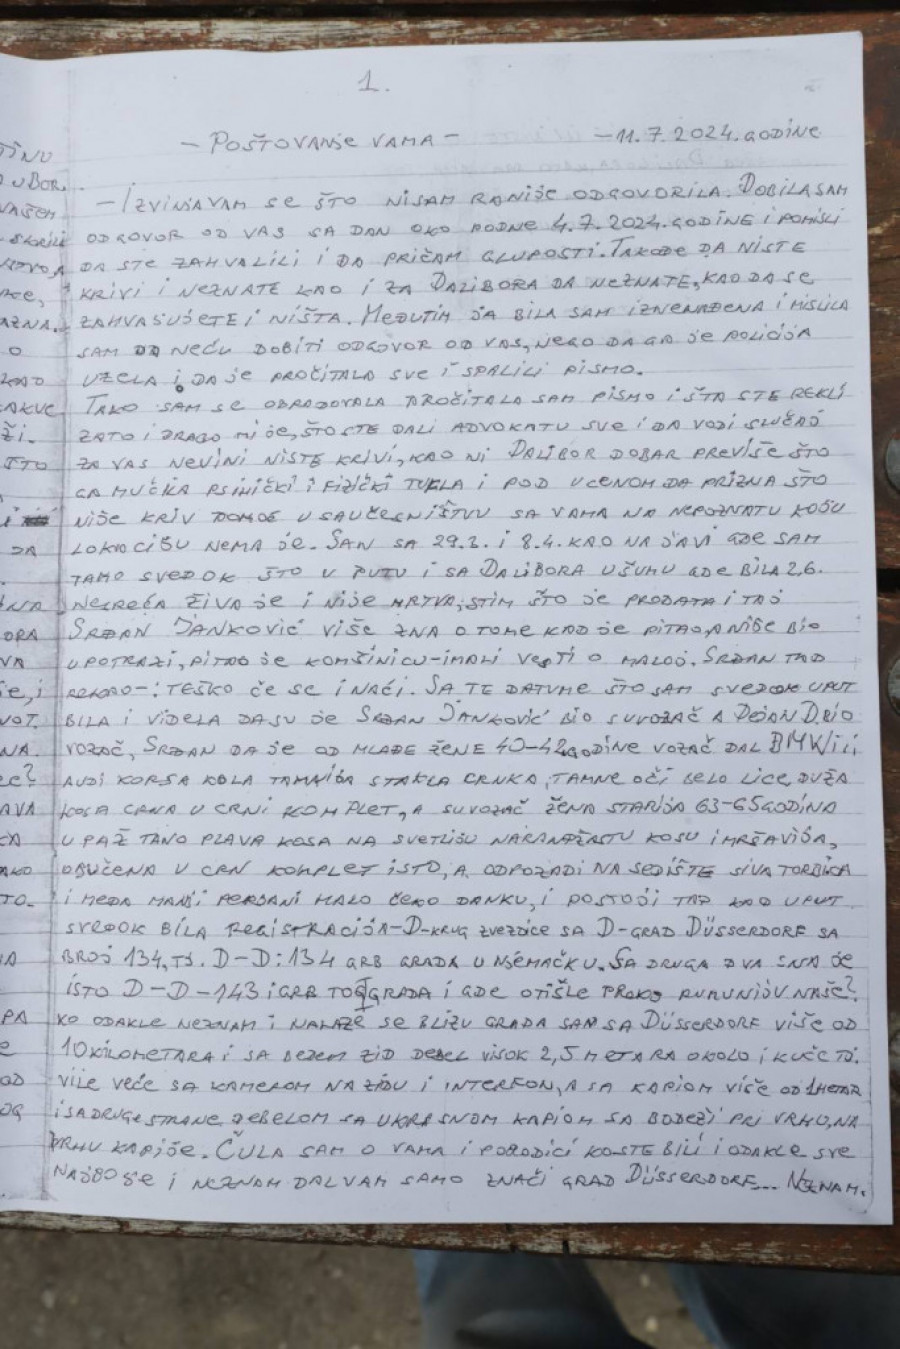 1.
- POŠTOVANJE VAMA - - 11.7.2024. GODINE
- IZVINJAVAM SE ŠTO NISAM RANIJE ODGOVORILA. DOBILA SAM
ODGOVOR OD VAS SA DAN OKO PODNE 4.7.2024. GODINE I POMISLI
DA STE ZAHVALILI I DA PRIČAM GLUPOSTI. TAKOĐE DA NISTE
KRIVI I NEZNATE KAO I ZA DALIBORA DA NEZNATE, KAO DA SE
ZAHVAŠUJETE I NIŠTA. MEĐUTIM JA BILA SAM IZNENAĐENA I MISLILA
SAM DA NEĆU DOBITI ODGOVOR OD VAS, NEGO DA GA JE POLICIJA
UZELA I DA JE PROČITALA SVE I SPALILI PISMO.
TAKO SAM SE OBRADOVALA PROČITALA SAM PISMO I ŠTA STE REKLI
ZATO I DRAGO MI JE, ŠTO STE DALI ADVOKATU SVE I DA VODI SLUČAJ
ZA VAS NEVINI NISTE KRIVI, KAO NI DALIBOR DOBAR PREVIŠE ŠTO
GA MUČILA PSIHIČKI I FIZIČKI TUKLA I POD UCENOM DA PRIZNA ŠTO
NIJE KRIV U SAUČESNIŠTVU SA VAMA NA NEPOZNATU KOJU
LOKACIJU NEMA JE. SAN SA 29.3. I 8.4. KAO NA JAVI GDE SAM
TAMO SVEDOK ŠTO U PUTU I SA DALIBORA U ŠUMU GDE BILA 2,6.
NESREĆA ŽIVA JE I NIJE MRTVA, STIM ŠTO JE PRODATA I TAJ
SRĐAN JANKOVIĆ VIŠE ZNA O TOME KAD JE PITAO, A NIJE BIO
U POTRAZI, PITAO JE KOMŠINICU - IMALI VESTI O MALOJ. SRĐAN TAD
REKAO - : TEŠKO ĆE SE I NAĆI. SA TE DATUME ŠTO SAM SVEDOK UPUT
BILA I VIDELA DA SU JE SRĐAN JANKOVIĆ BIO SUVOZAČ A DEJAN D. BIO
VOZAČ, SRĐAN DA JE OD MLAĐE ŽENE 40-42 GODINE VOZAČ DAL BMW ILI
AUDI KORSA KOLA TAMNIJA STAKLA CRNKA, TAMNE OČI BELO LICE, DUŽA
KOSA CRNA U CRNI KOMPLET, A SUVOZAČ ŽENA STARIJA 63-65 GODINA
U PAŽ TANO PLAVA KOSA NA SVETLIJU NARANDŽASTU KOSU I MRŠAVIJA,
OBUČENA U CRN KOMPLET ISTO, A ODPOZADI NA SEDIŠTE SIVA TORBICA
I MEDA MANJI MALO DANKU, I POSTOJI TAD KAO UPUT
SVEDOK BILA REGISTRACIJA - D - KRUG ZVEZDICE SA D - GRAD DÜSSERDORF SA
BROJ 134, TJ. D-D: 134 GRB GRADA U NJEMAČKU. SA DRUGA DVA SNA JE
ISTO D-D-143 I GRB TOG GRADA I GDE OTIŠLE PREKO RUMUNIJU NAŠE?
KO ODAKLE NEZNAM I NALAZE SE BLIZU GRADA SAM SA DÜSSERDORF VIŠE OD
10 KILOMETARA I SA BEDEM ZID DEBEL VISOK 2,5 METARA OKOLO I KUĆE TJ.
VILE VEĆE SA KAMEROM NA ZIDU I INTERFON, A SA KAPIOM VIŠE OD 1 METAR
I SA DRUGE STRANE DEBELOM SA UKRASNOM KAPIOM SA BODEŽI PRI VRHO, NA
VRHU KAPIJE. ČULA SAM O VAMA I PORODICI KO STE BILI I ODAKLE SVE
NAJBOJE I NEZNAM DAL VAM SAMO ZNAČI GRAD DÜSSERDORF... NEZNAM.